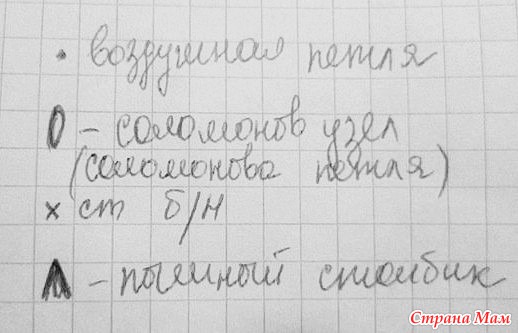 · воздушная петля
0 – соломонов узел
(соломонова петля)
x ст б/н
Λ – пышный столбик
Страна Мам